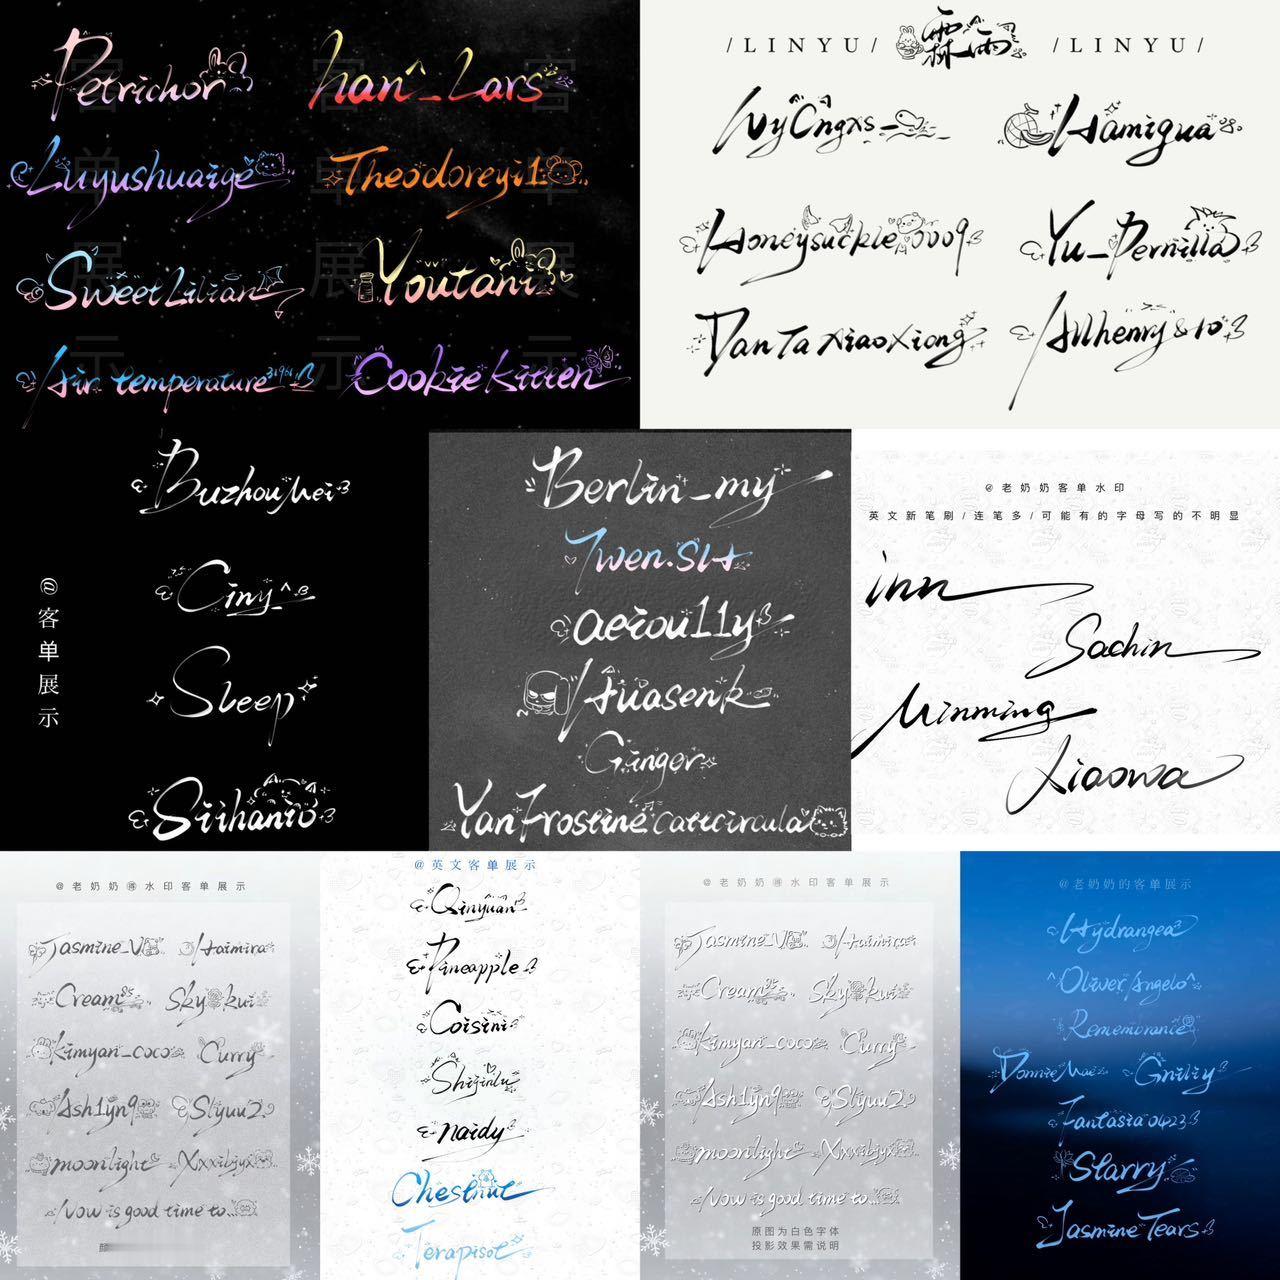 Petrichor
han^_Lars
Luyushuaige
Theodoreyi1
Sweet Lilian
Youtani
Air temperature
Cookie kitten
客单展示
客单展示
客单展示
/LINYU/
霖雨
/LINYU/
IvyCngxs_
Hamigua
Honeysuckle_0009
Yu_Pernilla
DanTaXiaoXiong
Allhenry810
BuzhouMei
Ciny_^
Sleep
Siihanio
@客单展示
Berlin_my
Twen.Slt
aeiou11y
Huasenk
Ginger
Yan Frostine cattcircula
@老奶奶客单水印
英文新笔刷/连笔多/可能有的字母写的不明显
inn
Sachin
Minming
Xiaowa
@老奶奶 水印客单展示
Jasmine_V
Haimira
Cream
Sky kui
kimyan_coco
Curry
Ash1yn9
Slyuu2
moonlight
Xxxibjyx
Now is good time to...
颜
@英文客单展示
Qinyuan
Pineapple
Coisini
Shijinlu
naidy
Chestnut
Terapisot
@老奶奶 水印客单展示
Jasmine_V
Haimira
Cream
Sky kui
kimyan_coco
Curry
Ash1yn9
Slyuu2
moonlight
Xxxibjyx
Now is good time to...
原图为白色字体
投影效果需说明
@老奶奶的客单展示
Hydrangea
^Oliver Angelo^
Rememorance
Donnie Mae
Gniliy
Fantasia0423
Starry
Jasmine Tears